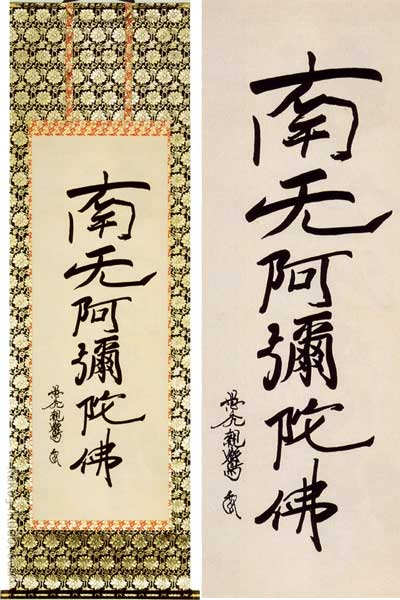 南无阿彌陀佛
愚禿親鸞
南无阿彌陀佛
愚禿親鸞